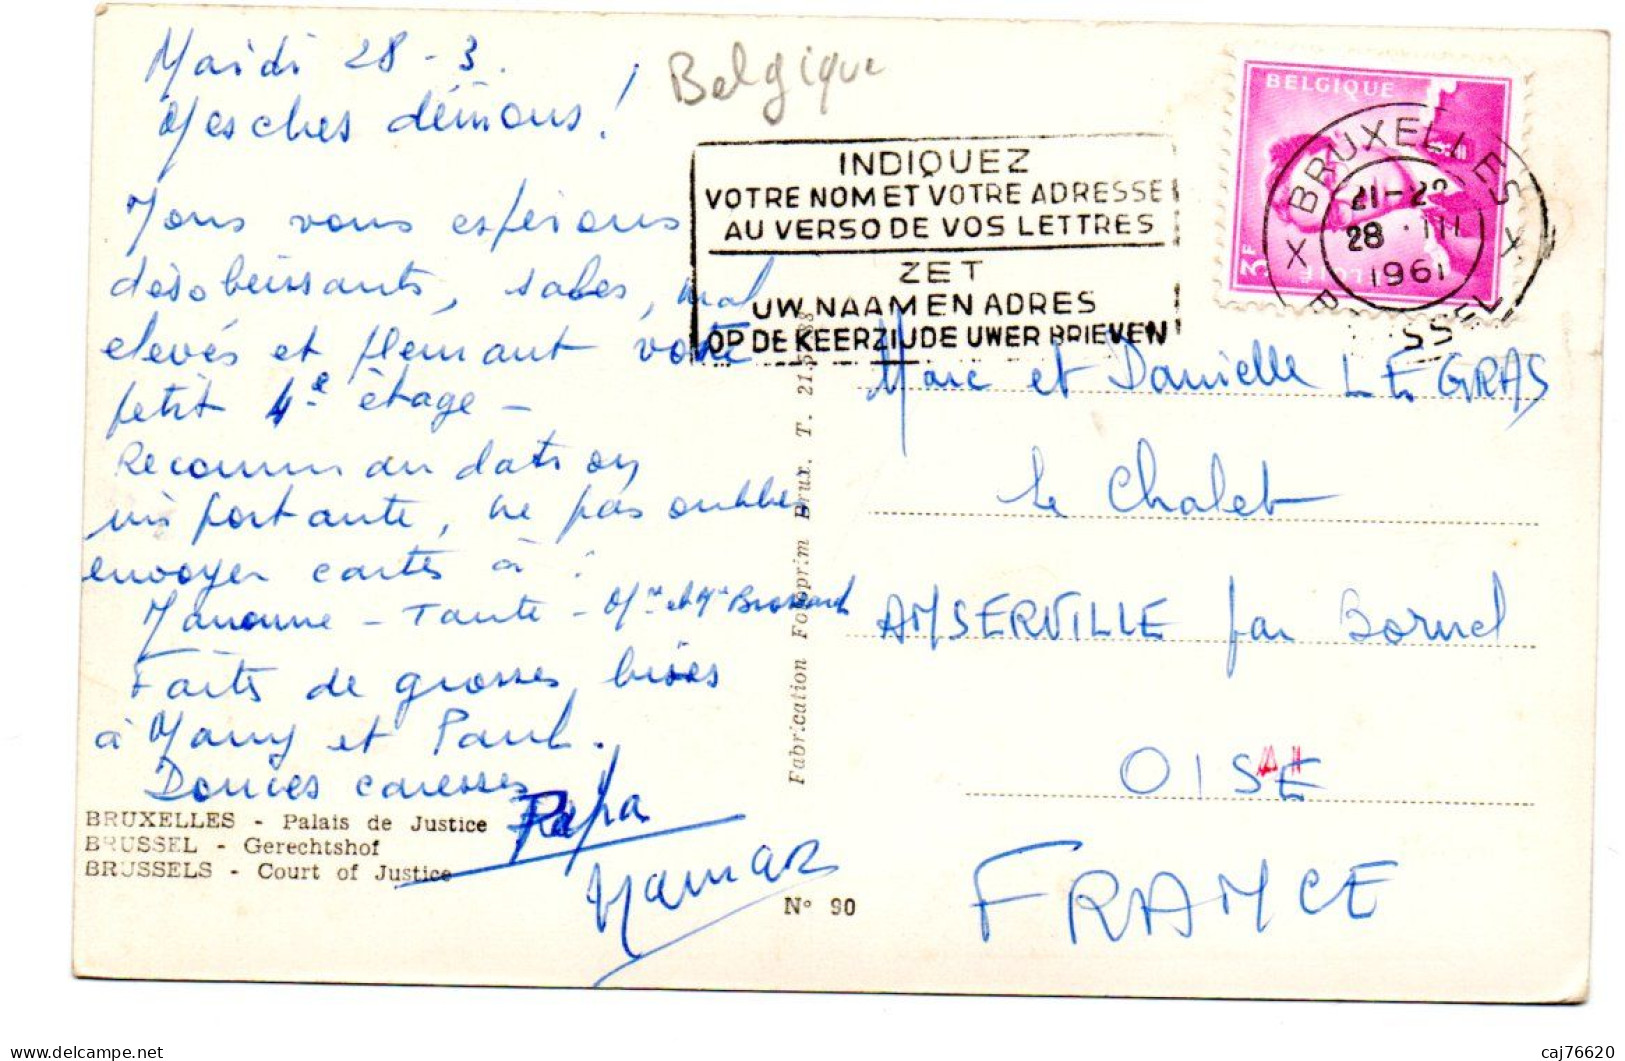 Mardi 28 - 3.
Mes chers démons !
Nous vous espérons
désobéissants, sales, mal
élevés et pleurant votre
petit 4e étage -
Recommandation
importante, ne pas oublier
envoyer cartes à :
Manoune - Tante - Mr et Me
Faites de grosses bises
à Mamy et Paul.
Douces caresses
Papa
Maman
BRUXELLES - Palais de Justice
BRUSSEL - Gerechtshof
BRUSSELS - Court of Justice
Nº 90
Fabrication Fotoprim Brux. T. 21.
Belgique
INDIQUEZ
VOTRE NOM ET VOTRE ADRESSE
AU VERSO DE VOS LETTRES
ZET
UW NAAM EN ADRES
OP DE KEERZIJDE UWER BRIEVEN
BELGIQUE
3F
BRUXELLES X
21-22
28 · III
1961
Marc et Danielle LEGRAS
Le Chalet
AMSERVILLE par Bornel
OISE
FRANCE
delcampe.net
caj76620